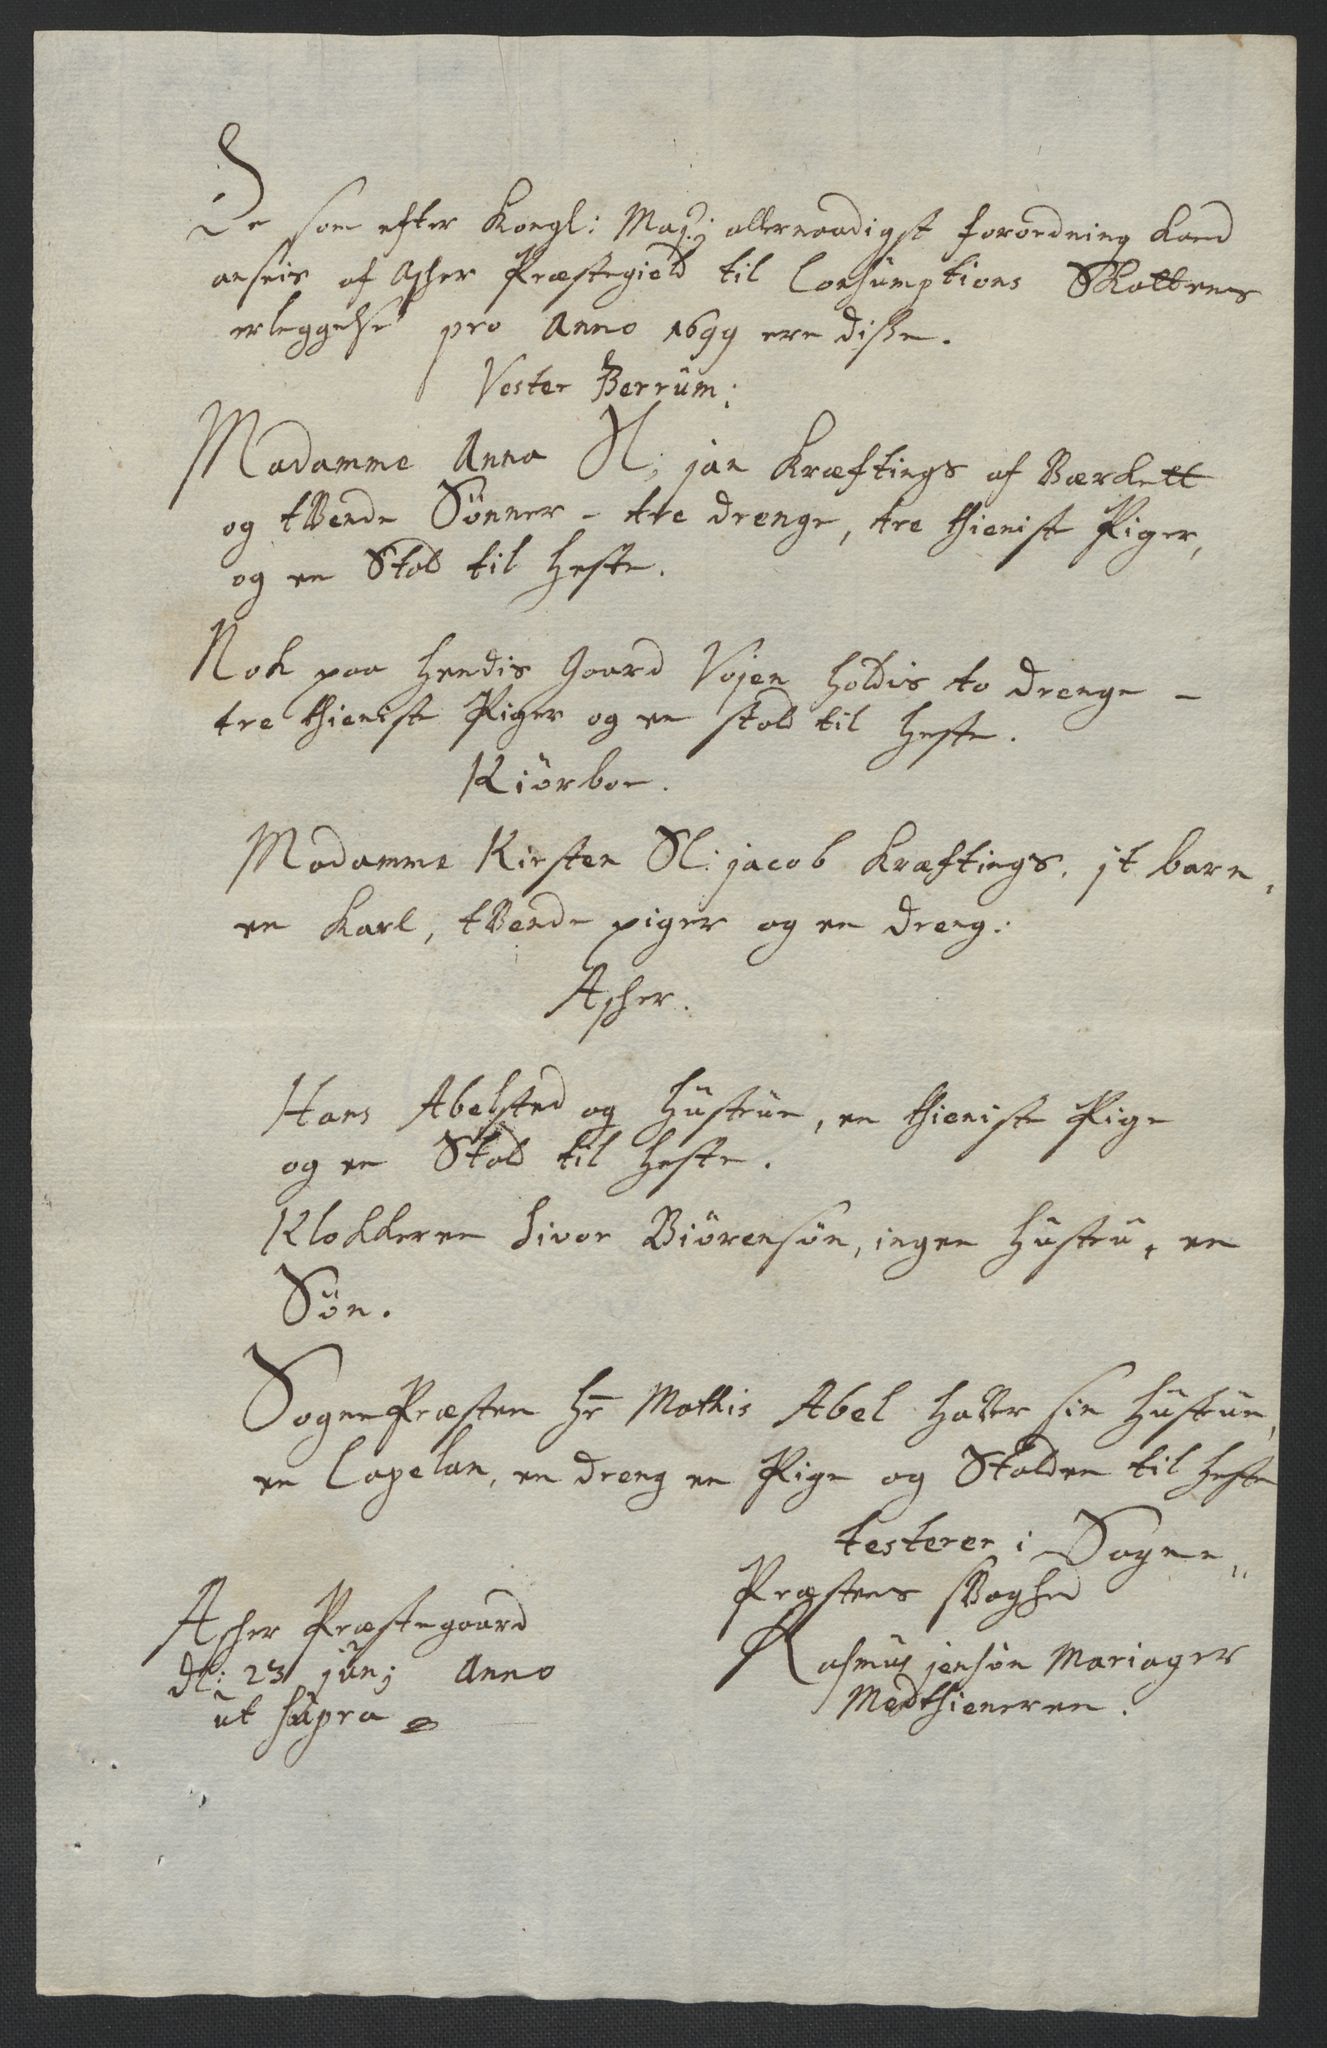 De som efter Kongl: Maj:j allernaadigst forordning kand
anseis af Asher Præstegield til Consumptions Skattens
erleggelse pro Anno 1699 ere disse.
Vester Berrum:
Madamme Anna Sl: jan Kræftings af Værckett
og tvende Sønner - tre drenge, tre thieniste Piger,
og en Stald til heste.
Nok paa hendis Gaard Vøjen holdis to drenge -
tre thieniste Piger og en stald til heste.
Kiörboe.
Madamme Kirsten Sl: jacob Kræftings, jt barn,
en karl, tvende piger og en dreng:
Asher.
Hans Abelsted og hustrue, en thieniste Pige
og en Stald til heste.
Klokkeren Sivor Biörensön, ingen hustru, en
Søn.
SognePræsten Hr Mathis Abel hafver sin hustrue,
en Capelan, en dreng en Pige og Stalden til heste
testerer i Sogne„
Præstens svaghed
Asher Præstegaard
dt: 23 junj Anno
ut supra
Rasmus jensøn Mariager
Medthieneren.